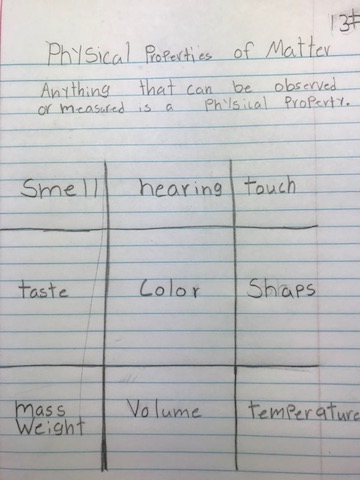 13#
Physical Properties of Matter
Anything that can be observed
or measured is a Physical Property.
Smell hearing touch
taste Color Shaps
mass
Weight Volume temperature